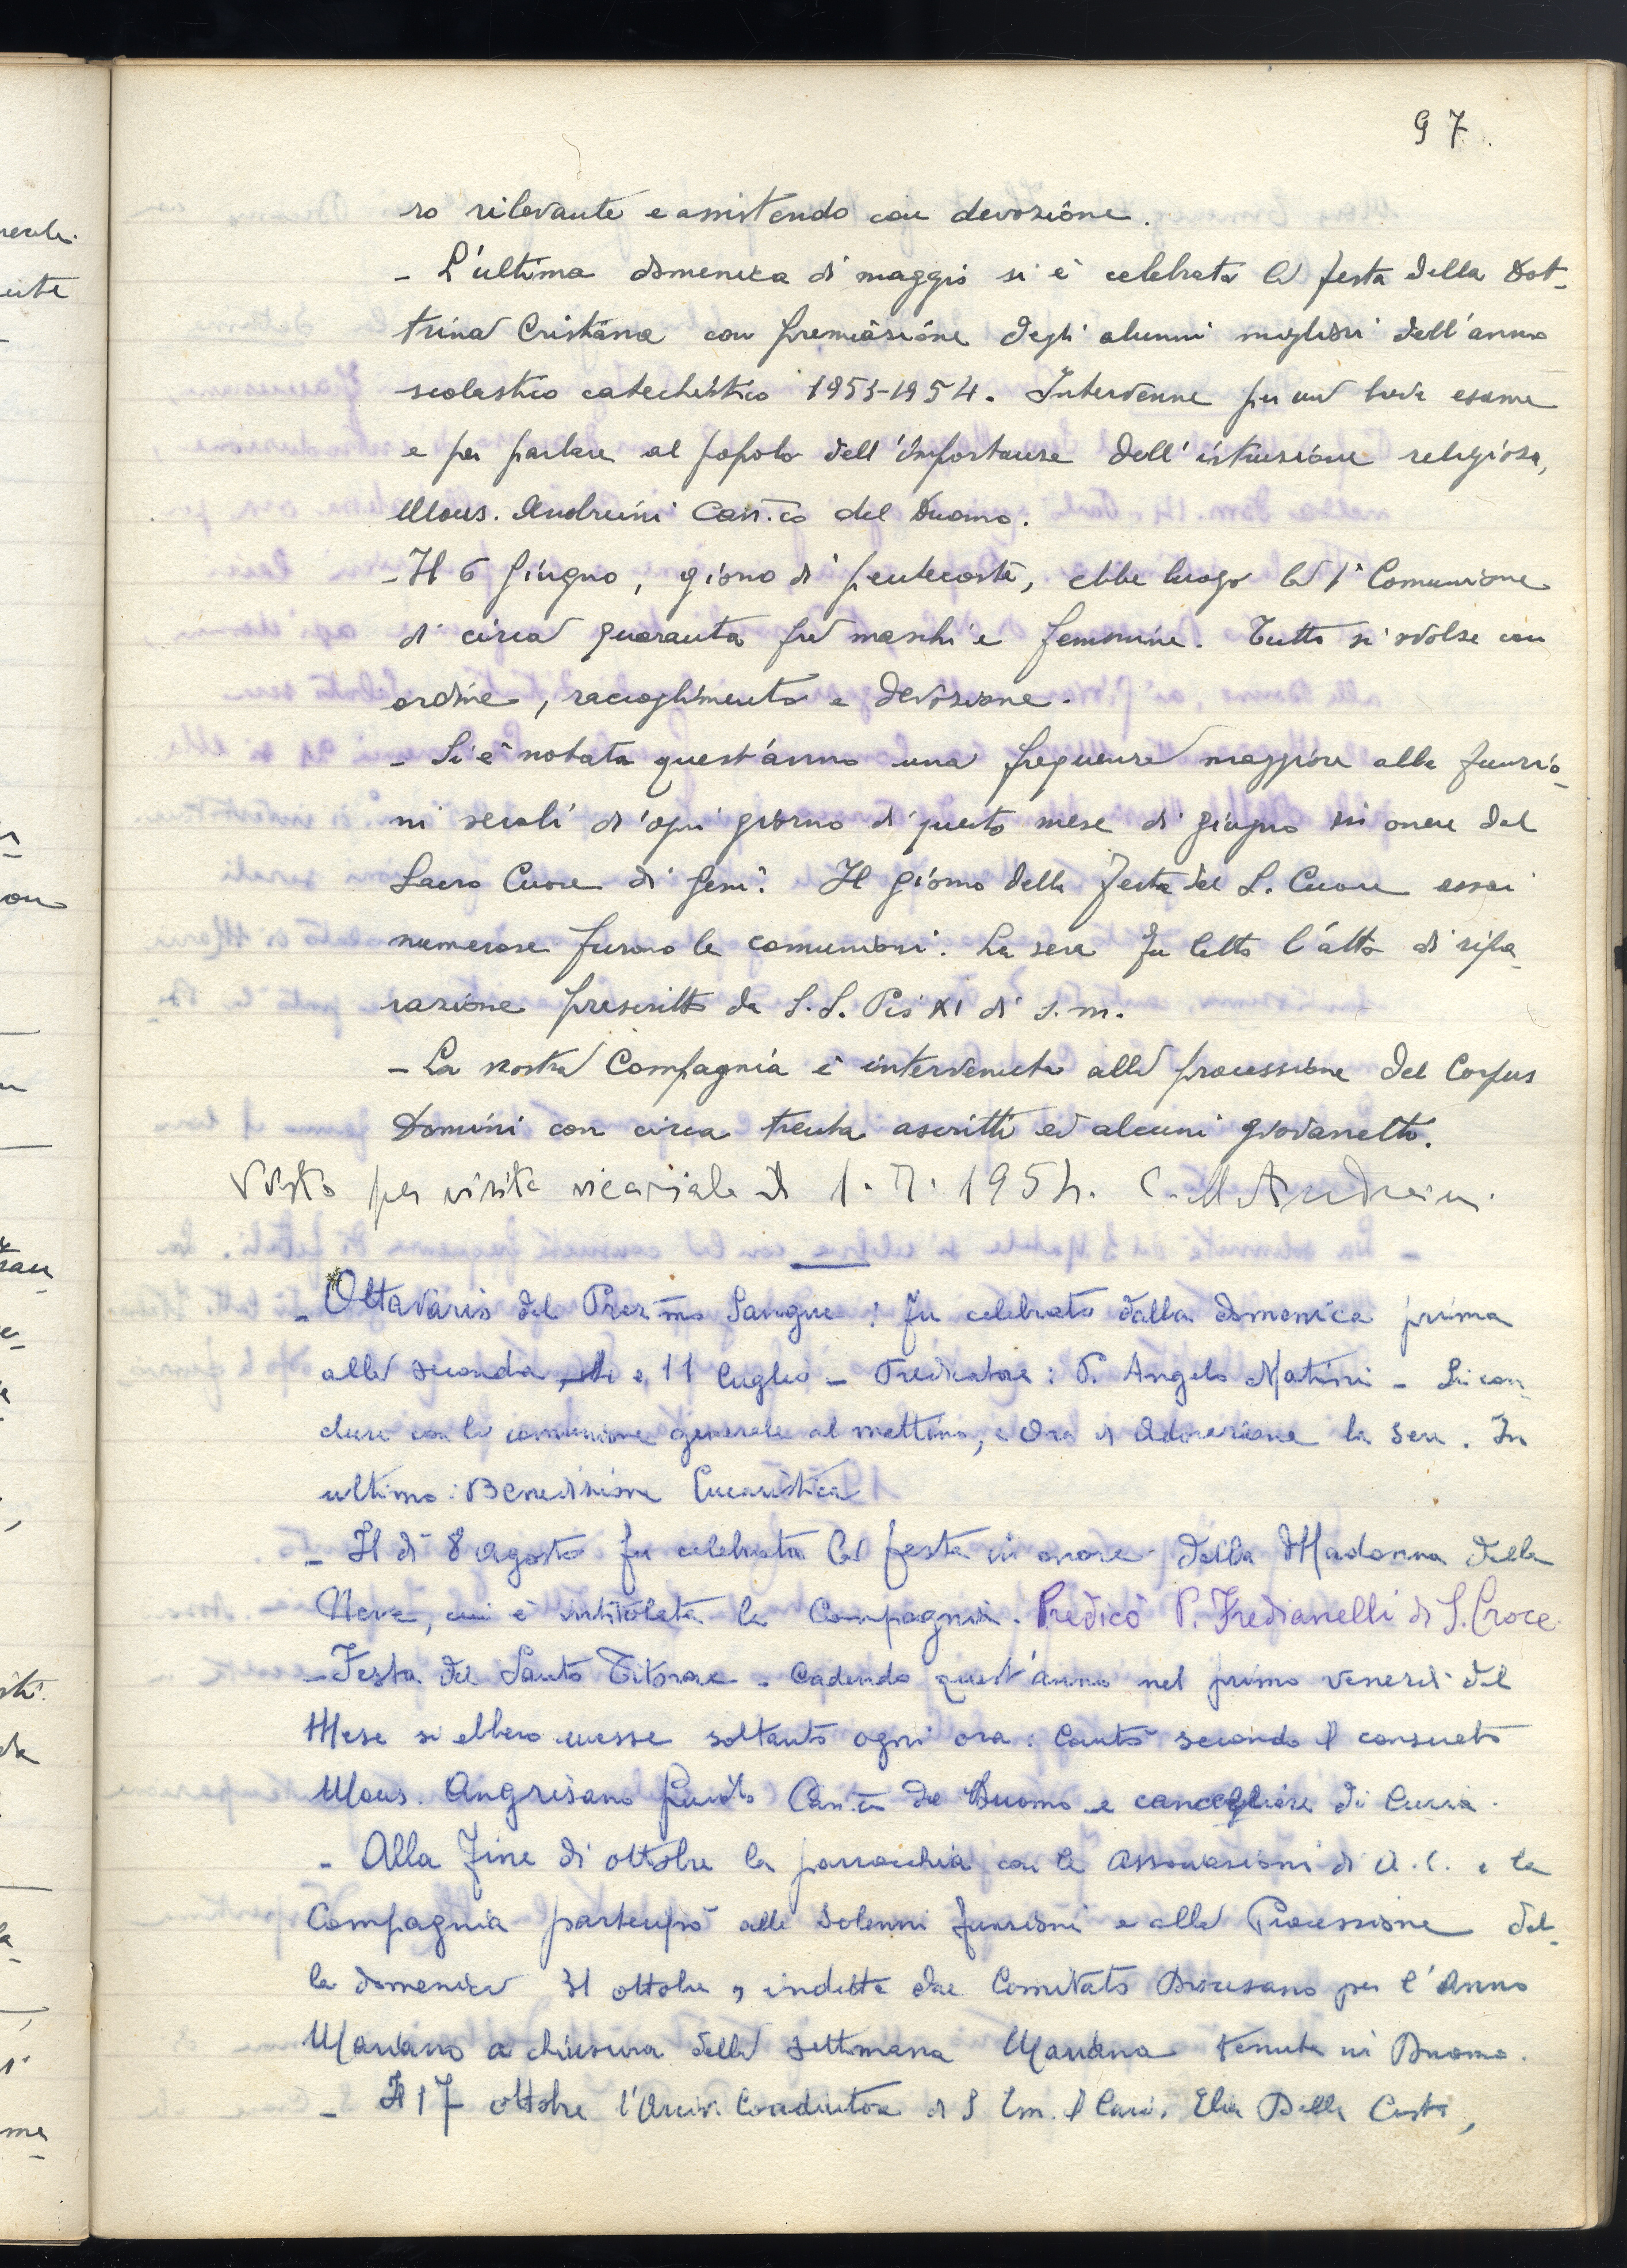 97.
ro rilevante e assistendo con devozione.
- L'ultima domenica di maggio si è celebrata la festa della Dot-
trina Cristiana con premiazione degli alunni migliori dell'anno
scolastico catechistico 1953-1954. Intervenne per un breve esame
e per parlare al popolo dell'importanza dell'istruzione religiosa,
Mons. Andreini Can.co del Duomo.
- Il 6 Giugno, giorno di pentecoste, ebbe luogo la 1ª Comunione
di circa quaranta fra maschi e femmine. Tutto si svolse con
ordine, raccoglimento e devozione.
- Si è notata quest'anno una frequenza maggiore alle funzio-
ni serali d'ogni giorno di questo mese di giugno in onore del
Sacro Cuore di Gesù. Il giorno della Festa del S. Cuore assai
numerose furono le comunioni. La sera fu letto l'atto di ripa-
razione prescritto da S.S. Pio XI di s.m.
- La nostra Compagnia è intervenuta alla processione del Corpus
Domini con circa trenta ascritti ed alcuni giovanetti.
Visto per visita vicariale il 1.7.1954. C. M Andreini.
- Ottavario del Prez.mo Sangue: fu celebrato dalla domenica prima
alla seconda, e 11 luglio - Predicatore: P. Angelo - Si con-
cluse con la comunione generale al mattino, e Ora di Adorazione la sera. In
ultimo: Benedizione Eucaristica
- Il dì 8 agosto fu celebrata la festa in onore della Madonna della
Neve, cui è intitolata la Compagnia. Predicò P. Fredianelli di S. Croce.
- Festa del Santo Titolare. Cadendo quest'anno nel primo venerdì del
Mese si ebbero messe soltanto ogni ora. Cantò secondo il consueto
Mons. Angrisano Guido Can.co del Duomo e cancelliere di Curia.
- Alla fine di ottobre la parrocchia con le associazioni di A.C. e la
Compagnia partecipò alle solenni funzioni e alla Processione del-
la domenica 31 ottobre, indetta dal Comitato Diocesano per l'Anno
Mariano a chiusura della settimana Mariana tenuta in Duomo.
- Il 17 ottobre l'Arciv. Coadiutore di S. Em. il Card. Elia Dalla Costa,